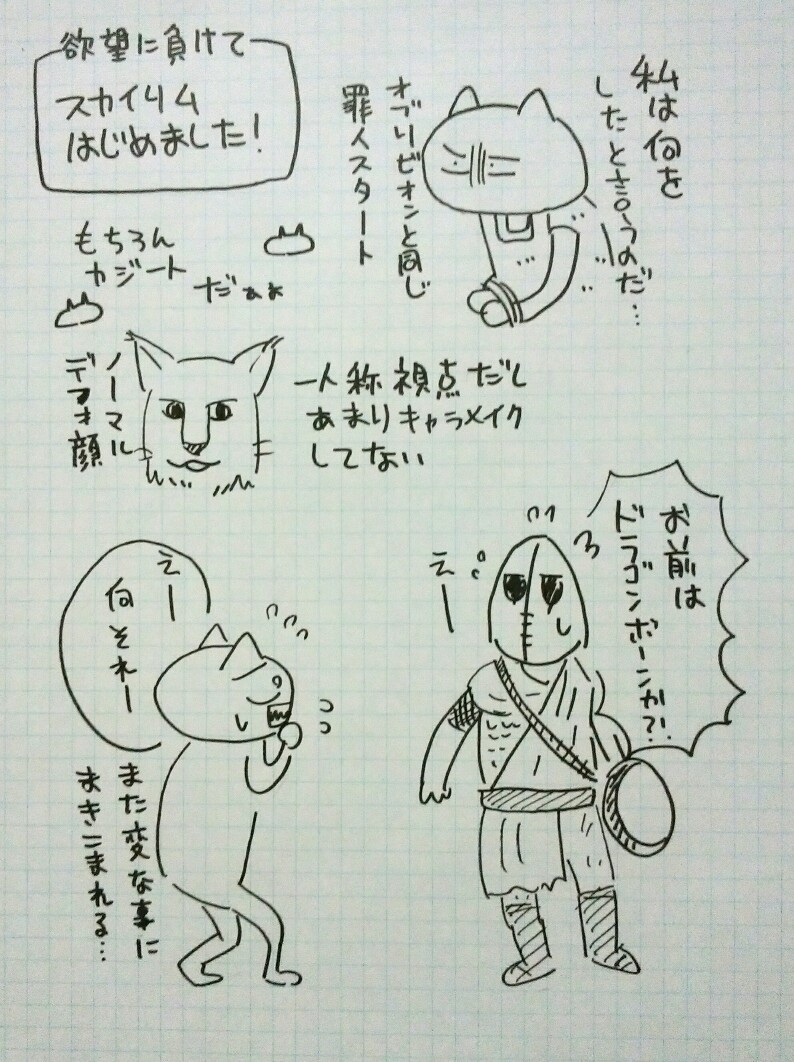 欲望に負けて
スカイリム
はじめました!
私は何を
したと言うのだ…
オブリビオンと同じ
罪人スタート
もちろん
カジート
だぁぁ
ノーマル
デフォ顔
一人称視点だし
あまりキャラメイク
してない
お前は
ドラゴンボーンか?!
えー
えー
何それー
また変な事に
まきこまれる…